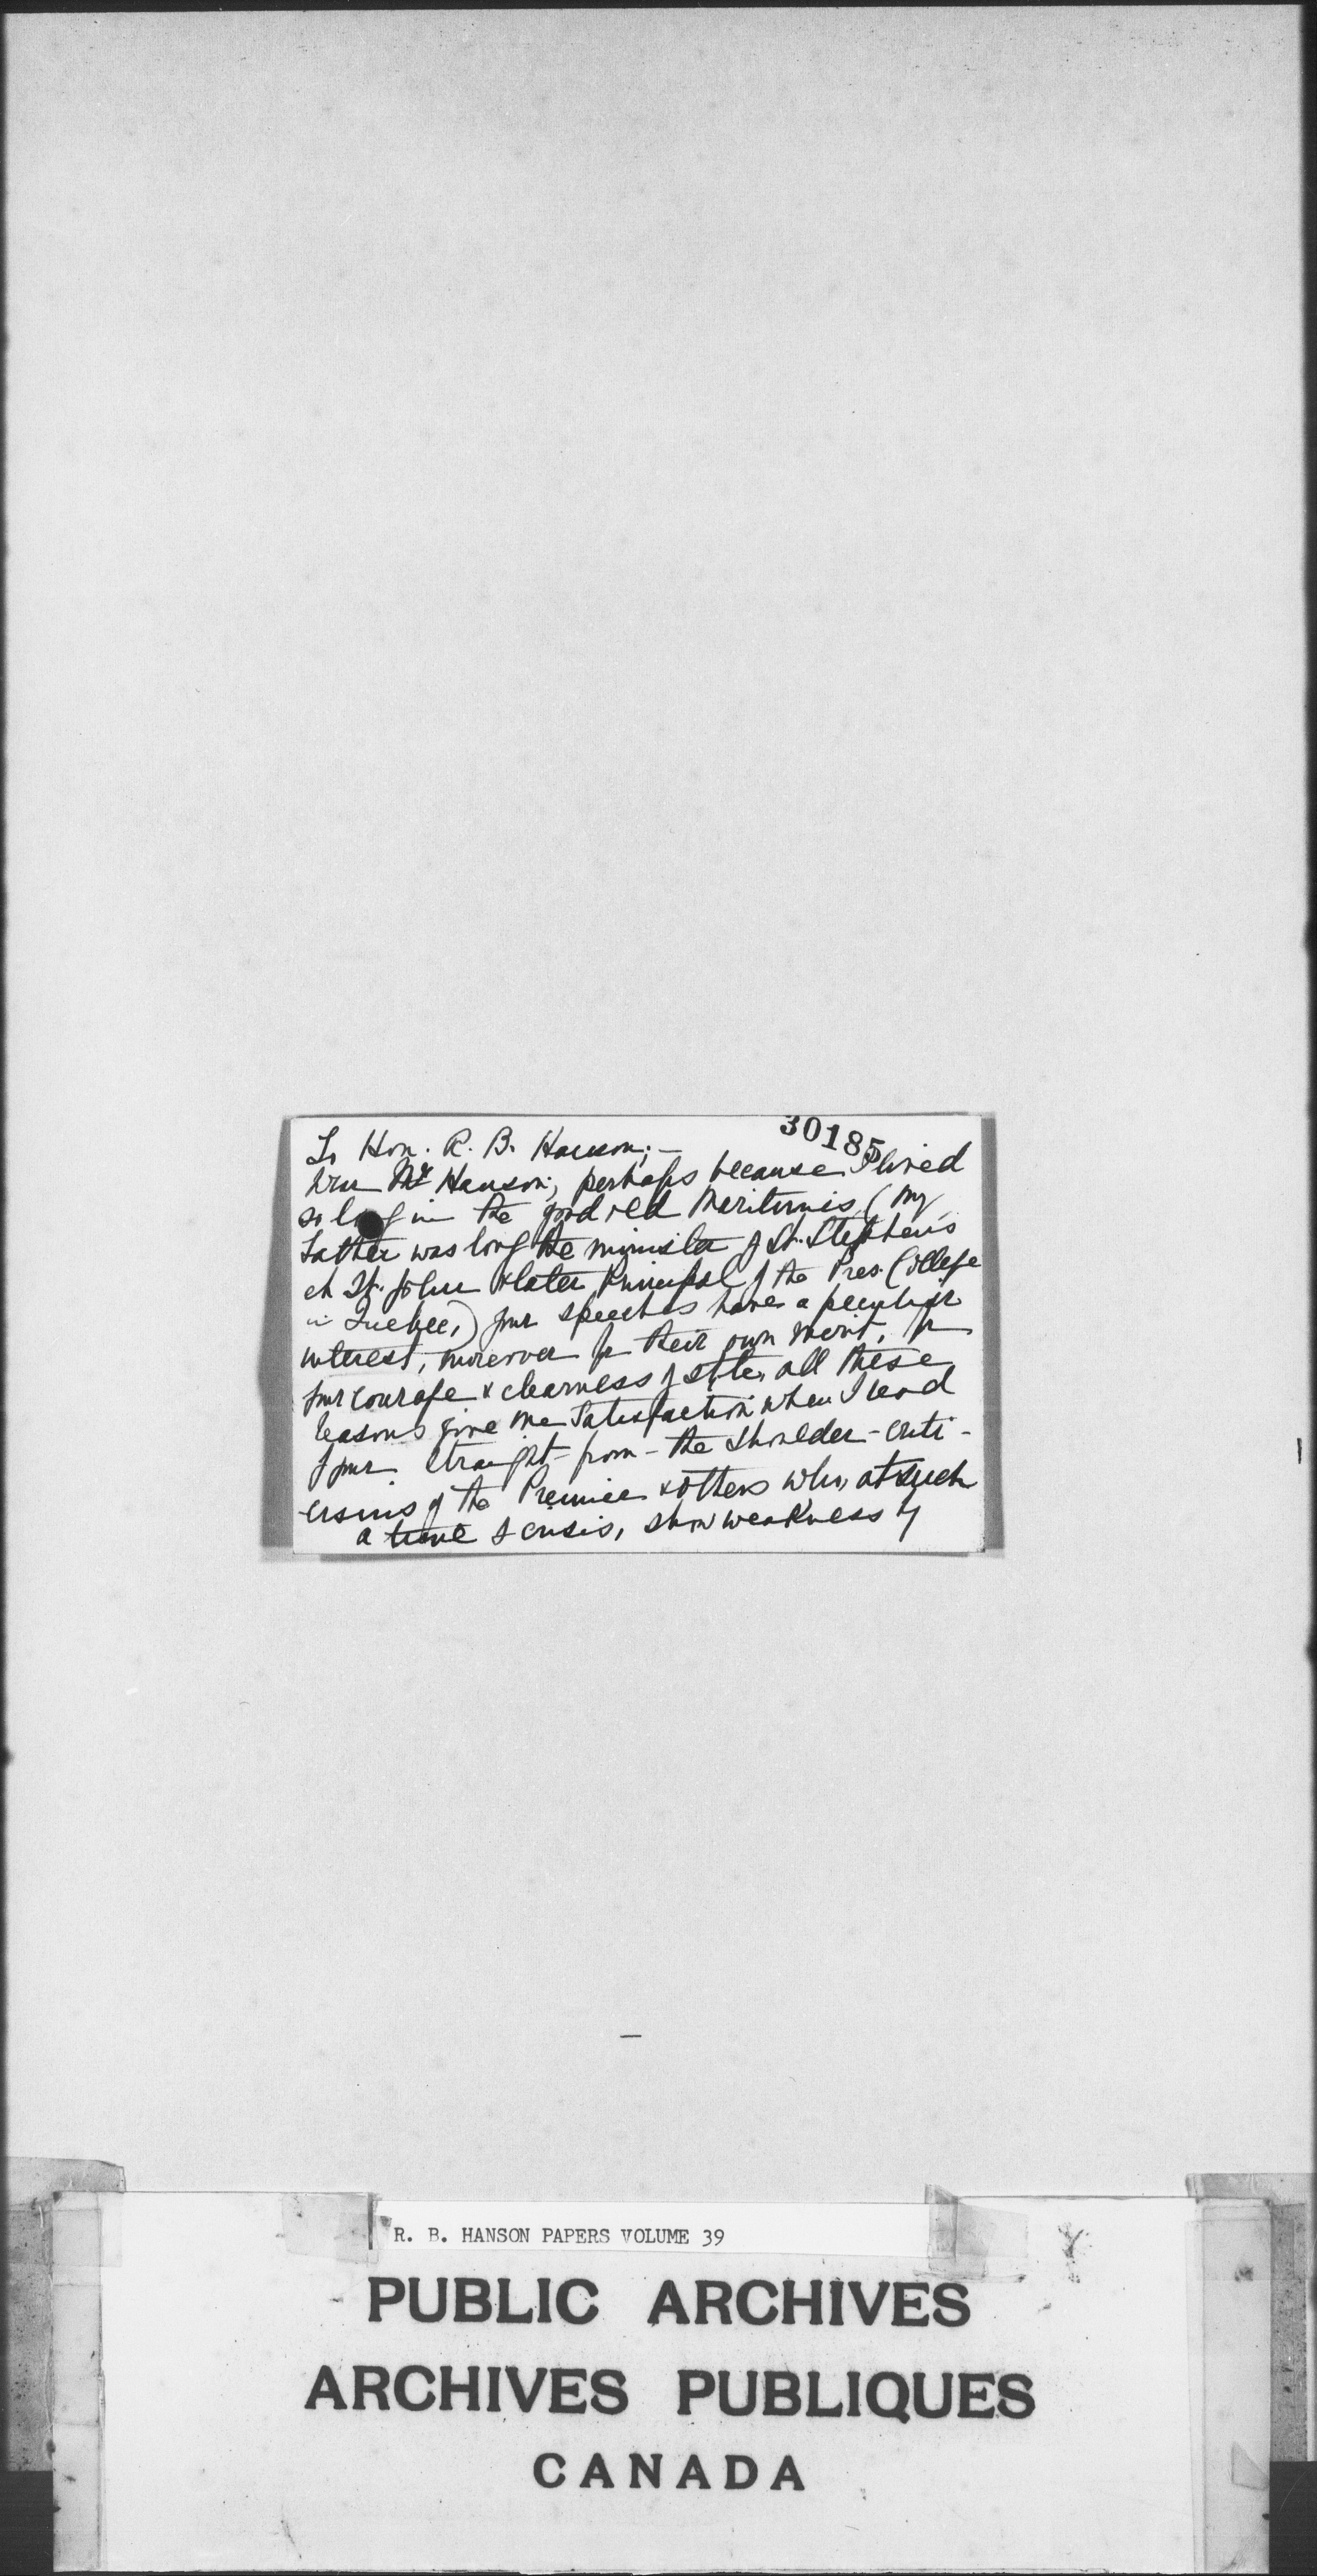 30185
To Hon. R. B. Hanson;-
Dear Mr Hanson, perhaps because I lived
so long in the good old Maritimes, (my
father was long the minister of St. Stephen's
ch St. John & later Principal of the Pres. College
in Quebec,) your speeches have a peculiar
interest, moreover for their own merit, for
your courage & clearness of style, all these
reasons give me satisfaction when I read
of your straight-from-the shoulder-criti-
cisms of the Premier & others who, at such
a time of crisis, show weakness by
R. B. HANSON PAPERS VOLUME 39
PUBLIC ARCHIVES
ARCHIVES PUBLIQUES
CANADA